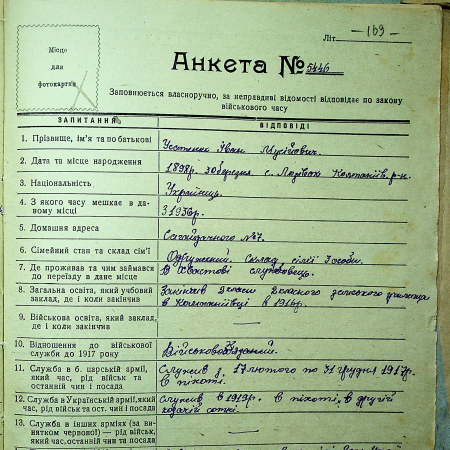 Літ — 169 —
Місце
для
фотокартки
Анкета № 5446
Заповнюється власноручно, за неправдиві відомості відповідає по закону
військового часу
ЗАПИТАННЯ
ВІДПОВІДІ
1. Прізвище, ім'я та по батькові
Устенко Іван Мусійович.
2. Дата та місце народження
1898р. 30 березня, с. Лозоват Компаніїв. р-н.
3. Національність
Українець.
4. З якого часу мешкає в даному місці
З 1936р.
5. Домашня адреса
Сагайдачного №7.
6. Сімейний стан та склад сім'ї
Одружений. Склад сім'ї 3 особи.
7. Де проживав та чим займався до переїзду в дане місце
В Хвастові службовець.
8. Загальна освіта, який учбовий заклад, де і коли закінчив
Закінчив 2 класи 2 класного сельского училища
в Компаніївці в 1916р.
9. Військова освіта, який заклад, де і коли закінчив
—
10. Відношення до військової служби до 1917 року
Військовозобов'язаний.
11. Служба в б. царській армії, який час, рід військ та останній чин і посада
Служив з 17 лютого по 31 грудня 1917р.
В піхоті.
12. Служба в Українській армії, який час, рід військ та ост. чин і посада
Служив в 1919р. в піхоті, в другій
ходачій сотні.
13. Служба в інших арміях (за винятком червоної) — рід військ, який час, останній чин та посада
—